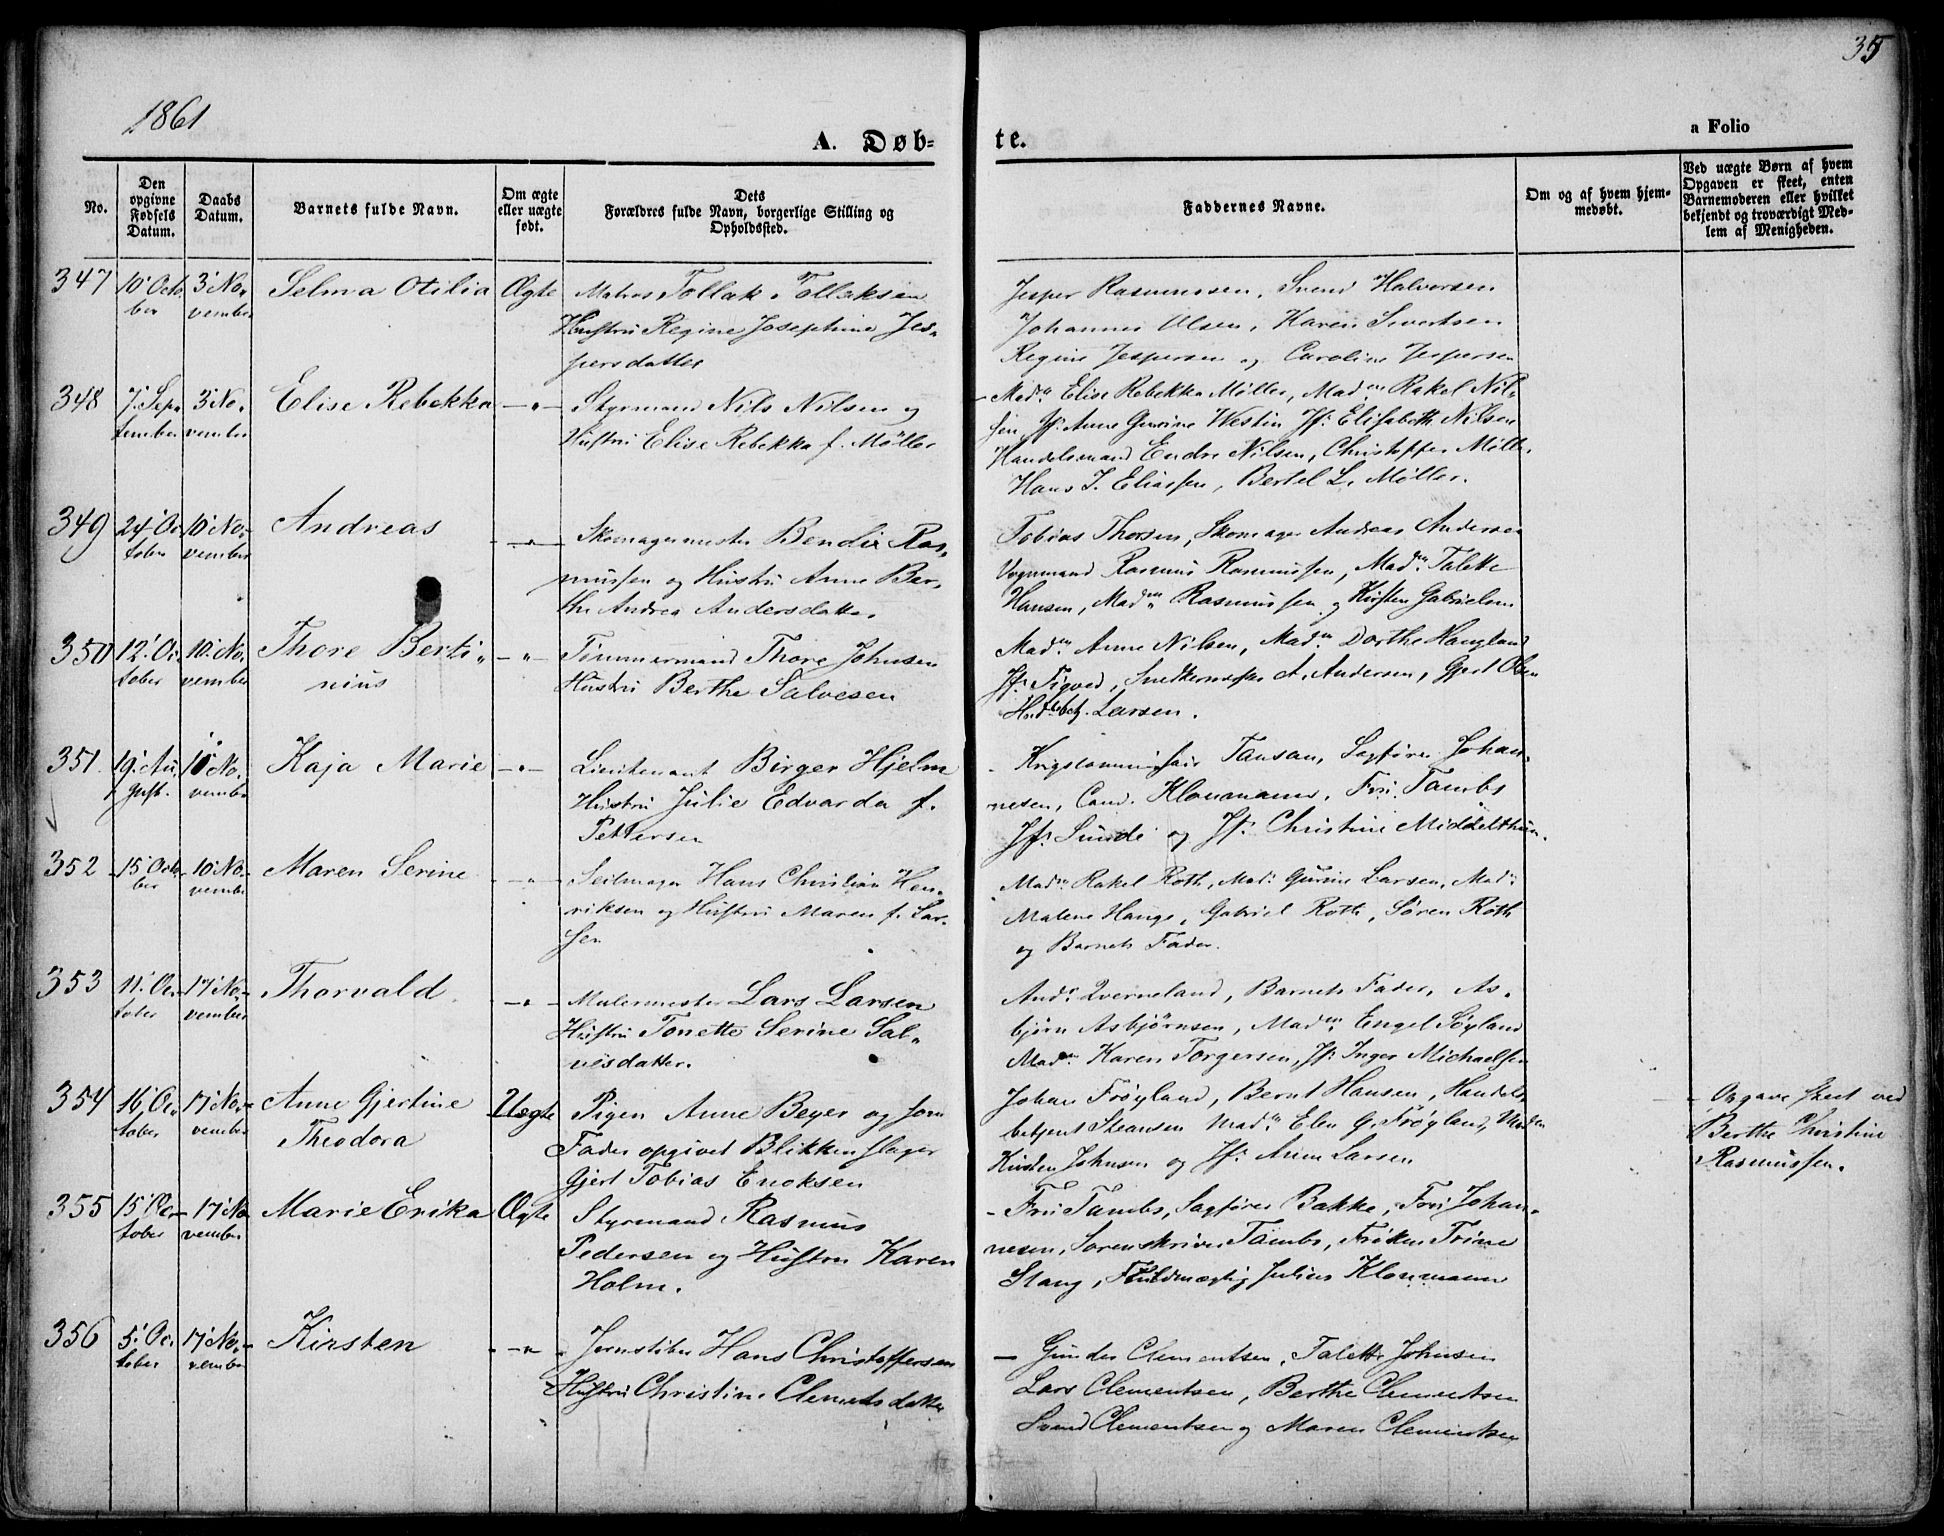 35
1861
A. Døb-
te.
a Folio
No.
Den
opgivne
Fødsels
Datum.
Daabs
Datum.
Barnets fulde Navn.
Om ægte
eller uægte
født.
Dets
Forældres fulde Navn, borgerlige Stilling og
Opholdssted.
Faddernes Navne.
Om og af hvem hjem-
medøbt.
Ved uægte Børn af hvem
Opgaven er skeet, enten
Barnemoderen eller hvilket
bekjendt og troværdigt Med-
lem af Menigheden.
347
10' Octo
ber
3' No-
vember
Selma Otilia
Ægte
Matros Tollak Tollaksen
Hustru Regine Josephine Jes-
persdatter
Jesper Rasmussen, Svend Halvorsen
Johannes Olsen, Karen Sivertsen
Regine Jespersen og Caroline Jespersen
348
7' Sep-
tember
3' No-
vember
Elise Rebekka
-"-
Styrmand Nils Nilsen og
Hustru Elise Rebekka f. Møller
- Mad. Elise Rebekka Møller, Mad. Rakel Nil-
sen, Jf. Anne Gurine Westin Jf. Elisabeth Nilsen
Handelsmand Endre Nilsen, Christoffer Møller
Hans J. Eliassen, Bertel L. Møller.
349
24' Oc-
tober
10' No-
vember
Andreas
-"-
Skomagermester Bendix Ras-
mussen og Hustru Anne Ber-
the Andrea Andersdatter
Tobias Thorsen, Skomager Andreas Andersen
Vognmand Rasmus Rasmussen, Mad. Talette
Hansen, Mad. Rasmussen og Kirsten Gabrielsen
350
12' Oc-
tober
10' No-
vember
Thore Berti-
nius
-"-
Tømmermand Thore Johnsen
Hustru Berthe Salvesen
Mad. Anne Nilsen, Mad. Dorthe Haugland
Jf. Tigved, Snedkermester A. Andersen, Gjert Olsen
Larsen.
351
19' Au-
gust.
10' No-
vember
Kaja Marie
-"-
Lieutenant Birger Hjelm
Hustru Julie Edvarda f.
Pettersen
- Krigscommissair Tausan, Sagfører Johan-
nesen, Cand. Kloumann, Fru Tambs
Jf. Sunde og Jf. Christine Middelthun.
352
15' Octo
ber
10' No-
vember
Maren Serine
-"-
Seilmager Hans Christian Hen-
riksen og Hustru Maren f. Lar-
sen
Mad. Rakel Roth, Mad. Gurine Larsen, Mad.
Malene Hauge, Gabriel Roth, Søren Roth
og Barnets Fader.
353
11' Oc-
tober
17' No-
vember
Thorvald
-"-
Malermester Lars Larsen
Hustru Tonette Serine Sal-
vesdatter.
And. Qverneland, Barnets Fader, As-
bjørn Asbjørnsen, Mad. Engel Søyland
Mad. Karen Torgersen, Jf. Inger Michaelsen
354
16' Oc-
tober
17' No-
vember
Anne Gjertine
Theodora
Uægte
Pigen Anne Beyer og som
Fader opgivet Blikkenslager
Gjert Tobias Eriksen
Johan Frøyland, Bernt Hansen, Handels-
betjent Steansen Mad. Elen G. Frøyland, Mad.
Kirsten Johnsen og Jf. Anne Larsen
- Opgave skeet ved
Berthe Christine
Rasmussen.
355
15' Oc-
tober
17' No-
vember
Marie Erika
Ægte
Styrmand Rasmus
Pedersen og Hustru Karen
Holm.
- Fru Tambs, Sagfører Bakke, Fru Johan-
nesen, Sorenskriver Tambs, Frøken Trine
Stang, Fuldmægtig Julius Kloumann
356
5' Oc-
tober
17' No-
vember
Kirsten
-"-
Jernstøber Hans Christoffersen
Hustru Christine Clementsdatter
- Gunder Clementsen, Talette Johnsen
Lars Clementsen, Berthe Clementsen
Svend Clementsen og Maren Clementsen